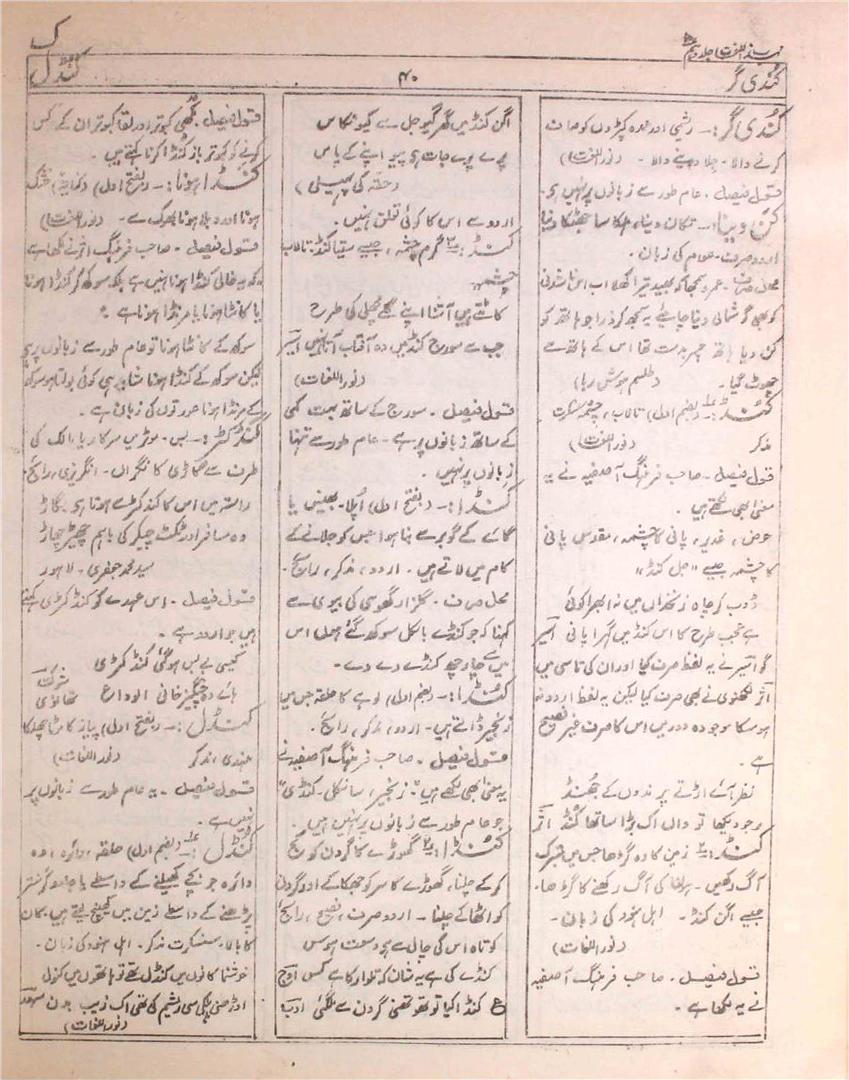 مہذب اللغات جلد دہم
ک
کُندی گر
۴۰
کنڈل
کُندی گر:۔ ریشمی اور عمدہ کپڑوں کو صاف
کرنے والا۔ جلا دینے والا۔ (نور اللغات)
قول فیصل۔ عام طور سے زبانوں پر نہیں ہے۔
کن دینا:۔ تکان دینا، ہلکا سا جھٹکا دینا
اردو صرف۔ عوام کی زبان۔
محل صرف۔ عمرو سمجھا کو بھید تیرا کھلا اب اس ناشدنی
کو بھی گوشمالی دینا چاہیے یہ سمجھ کر ذرا جو ہاتھ کو
کن دیا ہاتھ چرب دست تھا اس کے ہاتھ سے
چھوٹ گیا۔ (طلسم ہوش ربا)
کُنڈ:۔ (بضم اول) تالاب، چشمہ سنسکرت
مذکر (نور اللغات)
قول فیصل۔ صاحب فرہنگ آصفیہ نے یہ
معنی بھی لکھے ہیں۔
حوض، غدیر، پانی کا چشمہ، مقدس پانی
کا چشمہ جیسے "جل کنڈ"
ڈوب کر چاہ زنخداں میں نہ ابھرا کوئی
ہے عجب طرح کا اس کنڈ میں گہرا پانی اسیر
گو اسیر نے یہ لفظ صرف کیا اور ان کی تاسی میں
اثر لکھنوی نے بھی صرف کیا لیکن یہ لفظ اردو نہ
ہو سکا موجودہ دور میں اس کا صرف غیر فصیح
ہے۔
نظر آئے اڑتے پرندوں کے جھنڈ
وجود دیکھا تو واں اک بڑا سا تھا کُنڈ اثر
کُنڈ:۔ ۲ زمین کا وہ گڑھا جس میں متبرک
آگ رکھیں۔ پرانا کی آگ رکھنے کا گڑھا۔
جیسے اگن کنڈ۔ اہل ہنود کی زبان۔
(نور اللغات)
قول فیصل۔ صاحب فرہنگ آصفیہ
نے یہ لکھا ہے۔
اگن کنڈ میں گھر گیو جل سے کیو نکاس
پرے پرے جات ہی پیو اپنے کے پاس
(حقہ کی پہیلی)
اردو سے اس کا کوئی تعلق نہیں۔
کُنڈ:۔ ۳ گرم چشمہ، جیسے ستیا کنڈ۔ تالاب
چشمہ۔
کاٹتے ہیں آشنا اپنے گلے مچھلی کی طرح
جب سے سورج کنڈ میں وہ آفتاب آتا نہیں اسیر
(نور اللغات)
قول فیصل۔ سورج کے ساتھ بہت کمی
کے ساتھ زبانوں پر ہے۔ عام طور سے تنہا
زبانوں پر نہیں۔
کَنڈا:۔ (بفتح اول) اُپلا۔ بھینس یا
گائے کے گوبر سے بنا ہوا جس کو جلانے کے
کام میں لاتے ہیں۔ اردو، مذکر، رائج۔
محل صرف۔ گلزار گھوسی کی بیوی سے
کہنا کہ جو کنڈے بالکل سوکھ گئے ہوں اس
میں سے چار چھ کنڈے دے دے۔
کُنڈا:۔ (بضم اول) لوہے کا حلقہ جس میں
زنجیر ڈالتے ہیں۔ اردو، مذکر، رائج۔
قول فیصل۔ صاحب فرہنگ آصفیہ نے
یہ معنی بھی لکھے ہیں "زنجیر، سانکل، کنڈی"
جو عام طور سے زبانوں پر نہیں ہیں۔
کُنڈا:۔ ۲ گھوڑے کا گردن کو کج
کر کے چلنا، گھوڑے کا سر کو جھکا کے اور گردن
کو اٹھا کے چلنا۔ اردو صرف، فصیح، رائج
کوتاہ اس کی چال سے ہو وسعت ہوس
کنڈے کی ہے یہ شان کہ تلوار کا ہے کس اوج
ع کنڈا کیا تو تھوتھنی گردن سے مل گئی ادب
قول فیصل۔ مکھی کبوتر اور لقا کبوتر ان کے کس
کرنے کو کبوتر باز کنڈا کرنا کہتے ہیں۔
کَنڈا ہونا:۔ (بفتح اول) (کنایۃً) خشک
ہونا اور دبلا ہونا بھوک سے۔ (نور اللغات)
قول فیصل۔ صاحب فرہنگ اثر نے لکھا ہے
"کہ یہ خالی کنڈا ہونا نہیں ہے بلکہ سوکھ کر کنڈا ہونا
یا کانٹا ہونا یا مرنڈا ہونا ہے۔"
سوکھ کے کانٹا ہونا تو عام طور سے زبانوں پر ہے
لیکن سوکھ کے کنڈا ہونا شاید ہی کوئی بولتا ہو سوکھ
کے مرنڈا ہونا عورتوں کی زبان ہے۔
کنڈکٹر:۔ بس۔ موٹر میں سرکار یا مالک کی
طرف سے گاڑی کا نگراں۔ انگریزی، رائج۔
راستہ میں اس کا کنڈکٹر ہے ہوتا ہی بگاڑ
وہ مسافر اور ٹکٹ چیکر کی باہم چھیڑ چھاڑ
سید محمد جعفری۔ لاہور
قول فیصل۔ اس عہدے کو کنڈکٹری کہتے
ہیں جو اردو ہے۔
کیسی بے بس ہو گئی کنڈکٹری
ہائے وہ چنگیز خانی الوداع شوکت تھانوی
کَنڈل:۔ (بفتح اول) پیاز کا موٹا چھلکا
ہندی، مذکر (نور اللغات)
قول فیصل۔ یہ عام طور سے زبانوں پر
نہیں ہے۔
کُنڈل:۔ (بضم اول) حلقہ، دائرہ، وہ
دائرہ جو بچے کھیلنے کے واسطے یا جادوگر منتر
پڑھنے کے واسطے زمین میں کھینچ لیتے ہیں۔ کان
کا بالا۔ سنسکرت مذکر۔ اہل ہنود کی زبان۔
خوشنما کانوں میں کنڈل تھے تو ہاتھوں میں کنول
اوڑھنی ہلکی سی ریشم کی تھی اک زیب بدن
(نور اللغات)